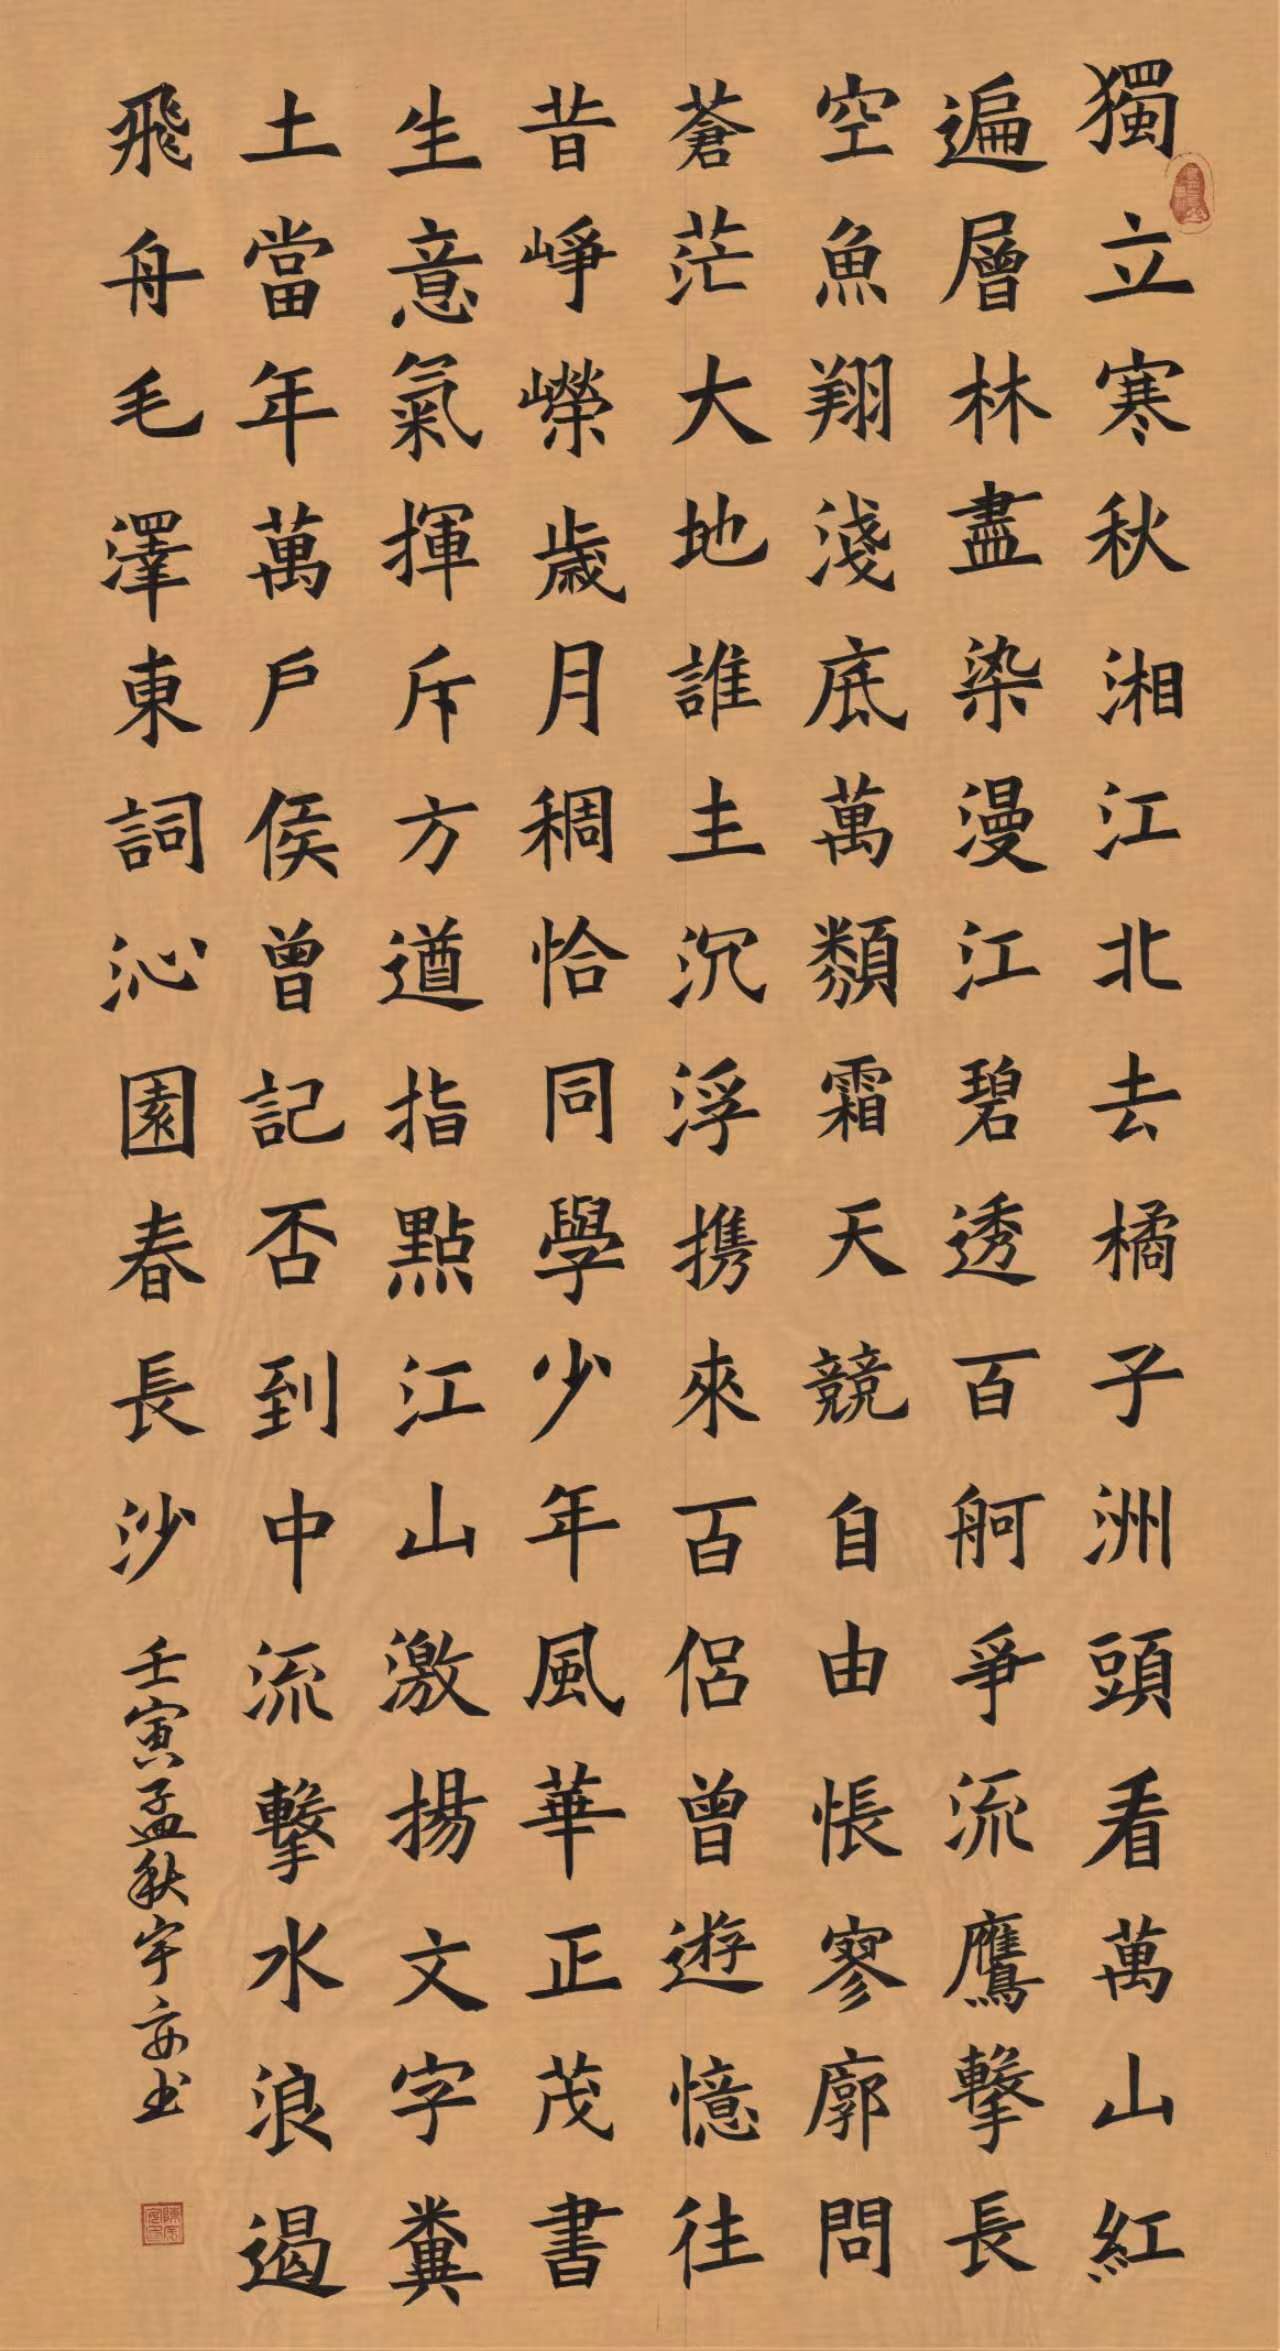 獨立寒秋湘江北去橘子洲頭看萬山紅
遍層林盡染漫江碧透百舸爭流鷹擊長
空魚翔淺底萬類霜天競自由悵寥廓問
蒼茫大地誰主沉浮携來百侶曾遊憶往
昔崢嶸歲月稠恰同學少年風華正茂書
生意氣揮斥方遒指點江山激揚文字糞
土當年萬戶侯曾記否到中流擊水浪遏
飛舟毛澤東詞沁園春長沙
壬寅孟秋宇安书